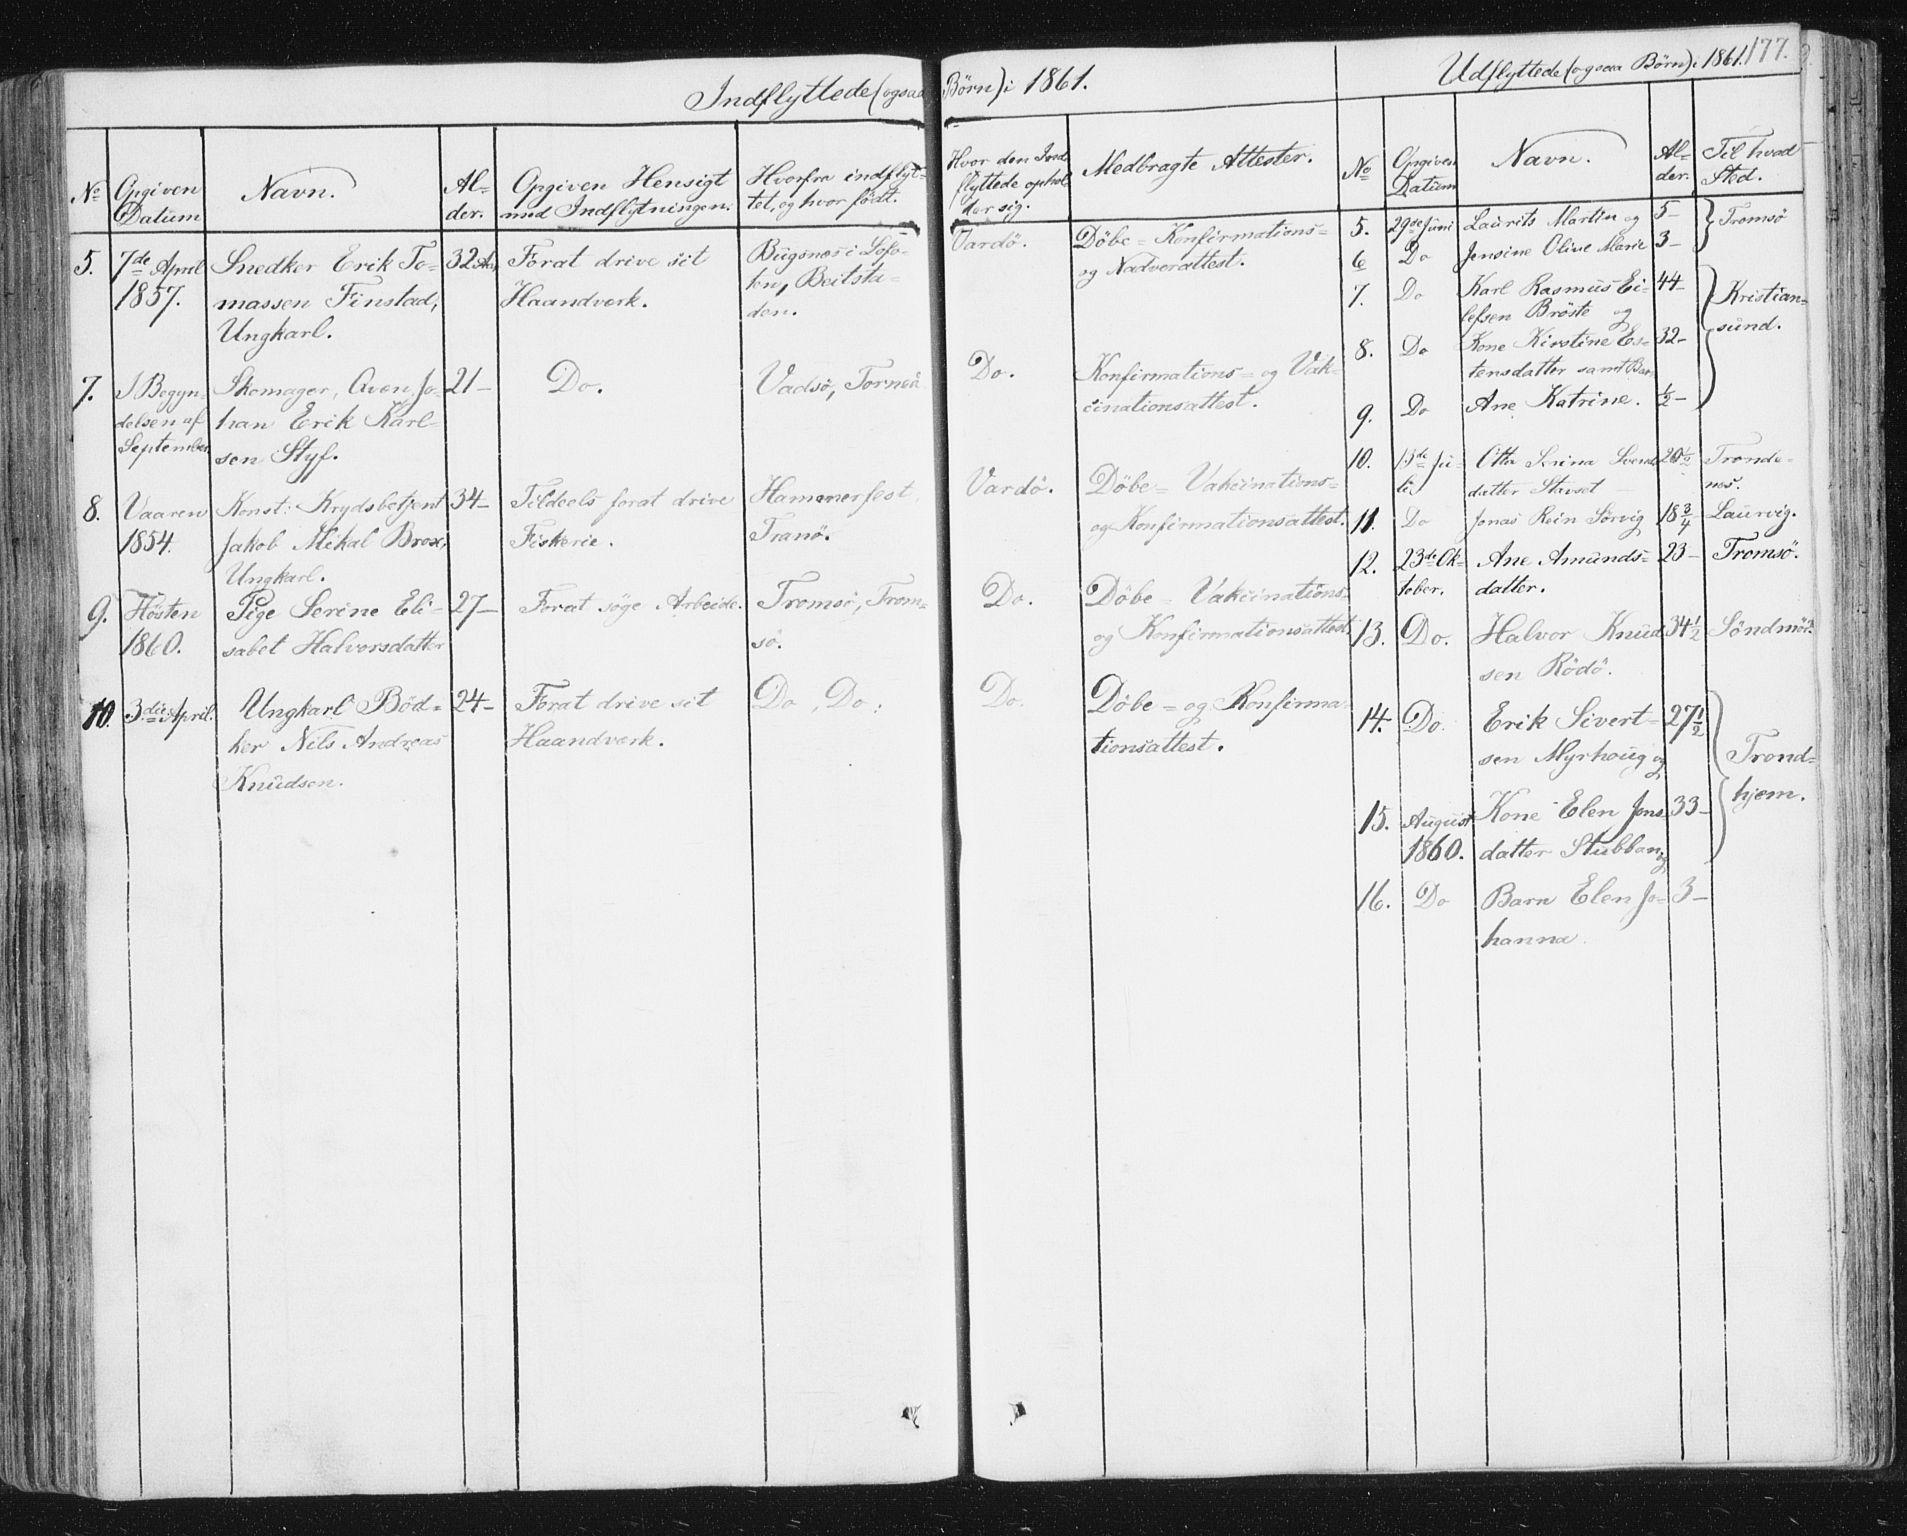 Indflyttede (ogsaa Børn) i 1861.
No
Opgiven
Datum
Navn.
Al-
der.
Opgiven Hensigt
med Indflytningen.
Hvorfra indflyt-
tet, og hvor født.
Hvor den Ind-
flyttede ophol-
der sig.
Medbragte Attester.
5.
7de April
1857.
Snedker Erik To-
massen Finstad,
Ungkarl.
32 Aar
Forat drive sit
Haandverk.
Bugsnes i Lofo-
ten, Beitsta-
den.
Vardö.
Döbe- Konfirmations-
og Nadverattest.
7.
I Begyn-
delsen af
September
Skomager, Qven Jo-
han Erik Karl-
sen Styf.
21 –
Do.
Vadsö, Torneå
Do.
Konfirmations- og Vak-
cinationsattest.
8.
Vaaren
1854.
Konst: Krydsbetjent
Jakob Mikal Brox,
Ungkarl.
34 –
Tildeels forat drive
Fiskerie.
Hammerfest,
Tranö.
Vardö.
Döbe- Vakcinations-
og Konfirmationsattest.
9.
Hösten
1860.
Pige Serine Eli-
sabet Halvorsdatter
27 –
Forat söge Arbeide.
Tromsö, Trom-
sö.
Do.
Döbe- Vakcinations-
og Konfirmationsattest.
10.
3die April.
Ungkarl Böd-
ker Nils Andreas
Knudsen.
24 –
Forat drive sit
Haandverk.
Do, Do:
Do.
Döbe- og Konfirma-
tionsattest.
Udflyttede (ogsaa Børn) i 1861.
177.
No
Opgiven
Datum
Navn.
Al-
der.
Til hvad
Sted.
5.
29de Juni
Laurits Martin og
5 –
Tromsö
6
Do
Jensine Olive Marie
3 –
7.
Do
Karl Rasmus Ei-
lefsen Bröste og
44 –
Kristian-
sund.
8.
Do
Kone Kirstine Es-
tensdatter samt Bar-
32 –
9.
Do
Ane Katrine.
½ –
10.
13de Ju-
li
Otta Serina Svends-
datter Stavset
20½
Tronde-
nes.
11.
Do
Jonas Rein Sörvig
18¾
Laurvig.
12.
23de Ok-
tober.
Ane Amunds-
datter.
23 –
Tromsö.
13.
Do.
Halvor Knud-
sen Rödö.
34½
Söndmör.
14.
Do.
Erik Sivert-
sen Myrhoug og
27½
Trond-
hjem.
15.
August
1860.
Kone Elen Jons-
datter Stubban, og
33 –
16.
Do
Barn Elen Jo-
hanna.
3 –